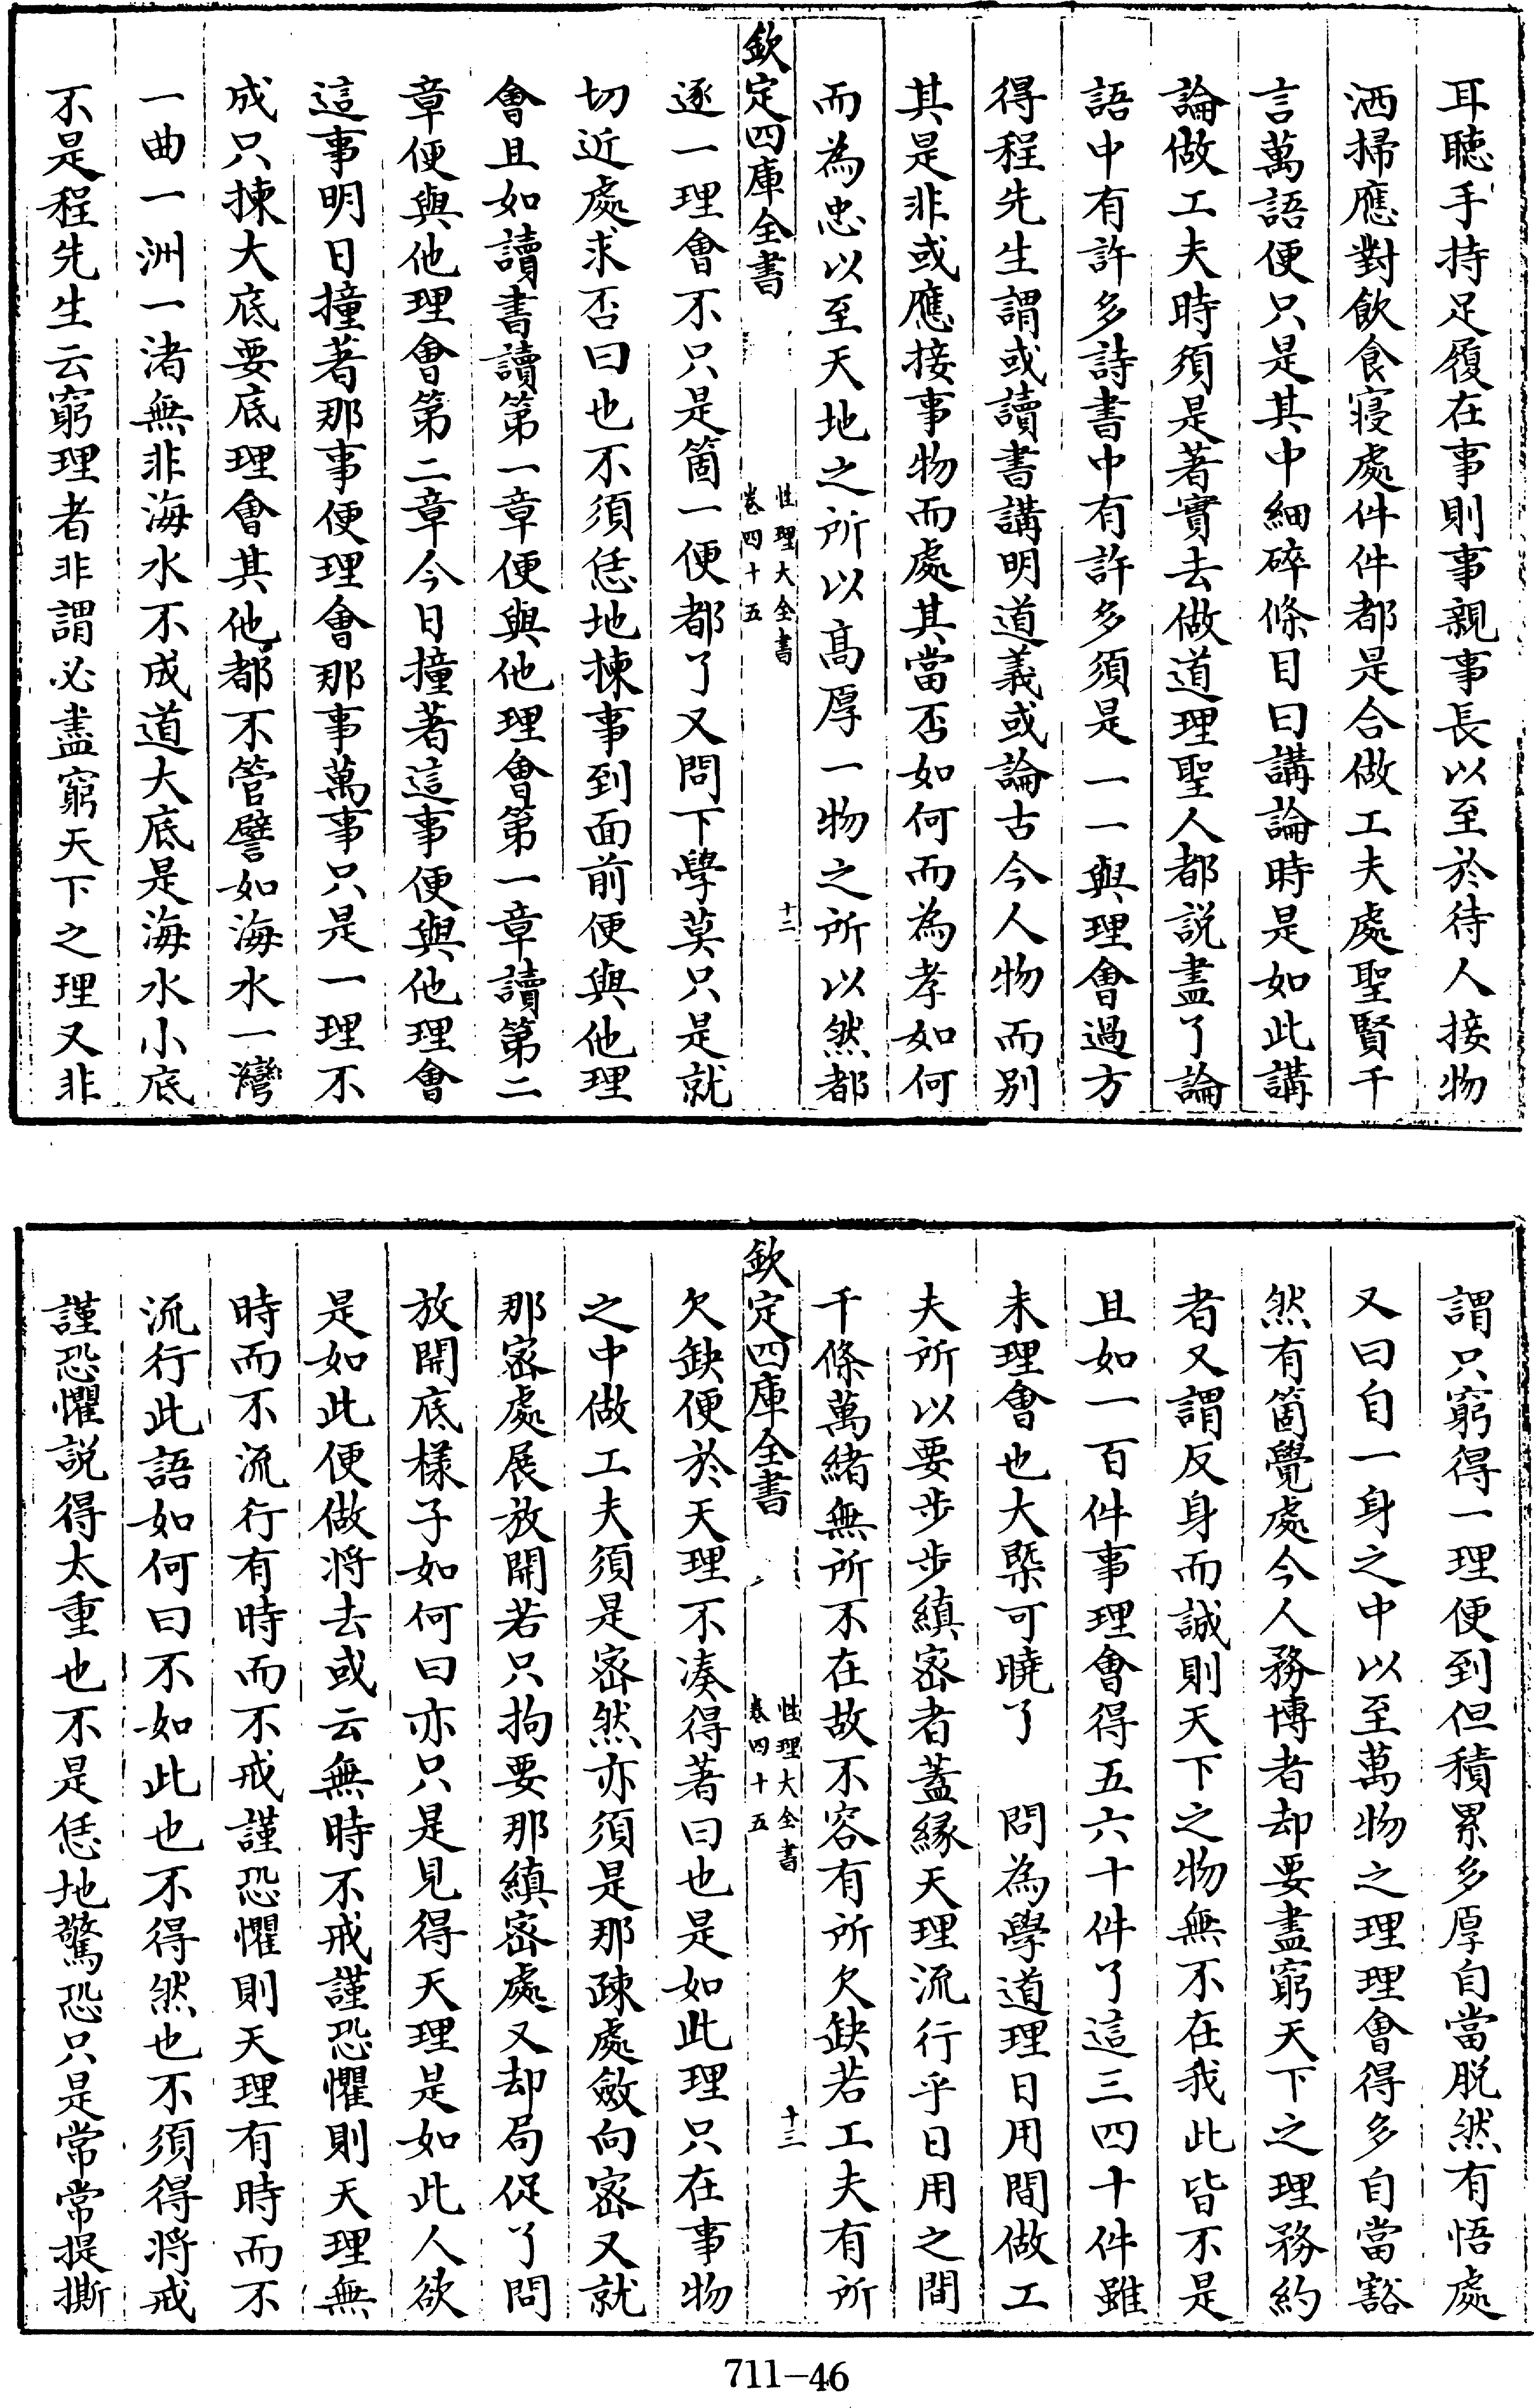 耳聽手持足履在事則事親事長以至於待人接物
洒掃應對飲食寢處件件都是合做工夫處聖賢千
言萬語便只是其中細碎條目曰講論時是如此講
論做工夫時須是著實去做道理聖人都説盡了論
語中有許多詩書中有許多須是一一與理會過方
得程先生謂或讀書講明道義或論古今人物而别
其是非或應接事物而處其當否如何而為孝如何
而為忠以至天地之所以高厚一物之所以然都
欽定四庫全書
性理大全書
卷四十五
十二
逐一理會不只是箇一便都了又問下學莫只是就
切近處求否曰也不須恁地揀事到面前便與他理
會且如讀書讀第一章便與他理會第一章讀第二
章便與他理會第二章今日撞著這事便與他理會
這事明日撞著那事便理會那事萬事只是一理不
成只揀大底要底理會其他都不管譬如海水一灣
一曲一洲一渚無非海水不成道大底是海水小底
不是程先生云窮理者非謂必盡窮天下之理又非
謂只窮得一理便到但積累多厚自當脱然有悟處
又曰自一身之中以至萬物之理理會得多自當豁
然有箇覺處今人務博者却要盡窮天下之理務約
者又謂反身而誠則天下之物無不在我此皆不是
且如一百件事理會得五六十件了這三四十件雖
未理會也大槩可曉了　問為學道理日用間做工
夫所以要步步縝密者蓋緣天理流行乎日用之間
千條萬緒無所不在故不容有所欠缺若工夫有所
欽定四庫全書
性理大全書
卷四十五
十三
欠缺便於天理不凑得著曰也是如此理只在事物
之中做工夫須是密然亦須是那疎處斂向密又就
那密處展放開若只拘要那縝密處又却局促了問
放開底樣子如何曰亦只是見得天理是如此人欲
是如此便做將去或云無時不戒謹恐懼則天理無
時而不流行有時而不戒謹恐懼則天理有時而不
流行此語如何曰不如此也不得然也不須得將戒
謹恐懼説得太重也不是恁地驚恐只是常常提撕
711-46